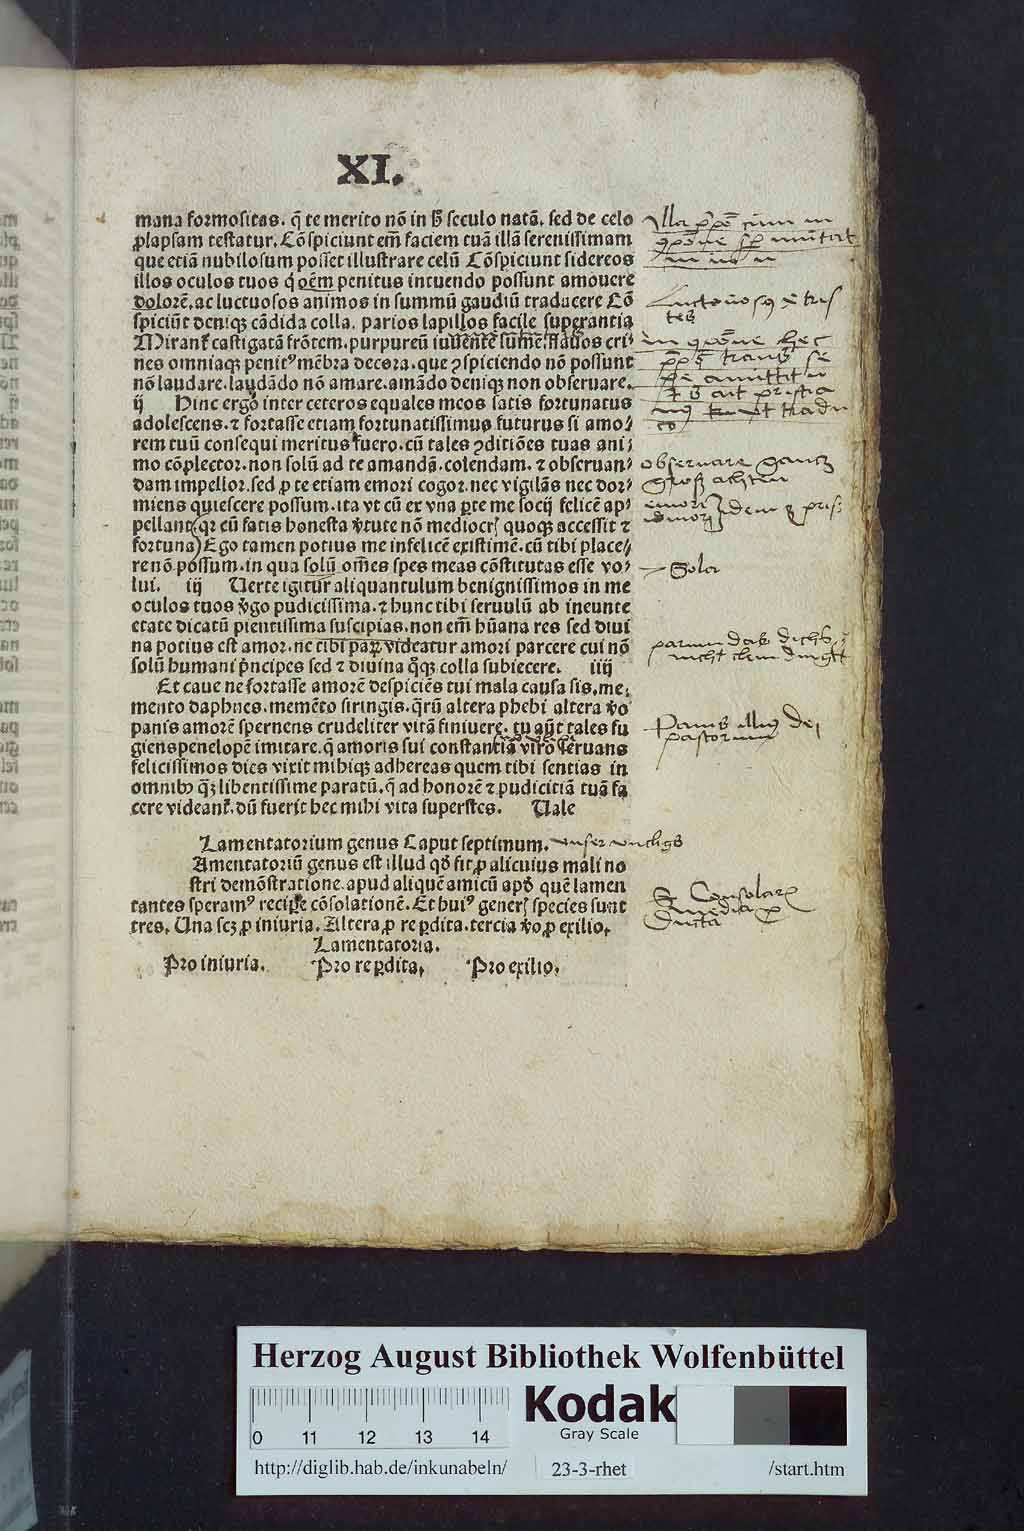 XI.
mana formositas. q̄ te merito nō in h̄ seculo natā. sed de celo
ꝓlapsam testatur. Cōspiciunt em̄ faciem tuā illā serenissimam
que etiā nubilosum posset illustrare celū Cōspiciunt sidereos
illos oculos tuos q̇ oēm penitus intuendo possunt amouere
dolorē. ac luctuosos animos in summū gaudiū traducere Cō
spiciūt deniqꝫ cādida colla. parios lapillos facile superantia
Mirant᷑ castigatā frōtem. purpureū iuuentē sūme flauos cri⸗
nes omniaqꝫ penitꝰ mēbra decora. que ꝯspiciendo nō possunt
nō laudare. laudādo nō amare. amādo deniqꝫ non obseruare.
ij Hinc ergo inter ceteros equales meos satis fortunatus
adolescens. ⁊ fortasse etiam fortunatissimus futurus si amo⸗
rem tuū consequi meritus fuero. cū tales ꝯditiōes tuas ani⸗
mo cōplector. non solū ad te amandā. colendam. ⁊ obseruan⸗
dam impellor. sed ꝓ te etiam emori cogor. nec vigilās nec dor⸗
miens quiescere possum. ita vt cū ex vna ꝑte me socij felicē ap⸗
pellant (qꝛ cū satis honesta v̓tute nō mediocrꝭ quoqꝫ accessit ⁊
fortuna) Ego tamen potius me infelicē existimē. cū tibi place⸗
re nō possum. in qua solū oēs spes meas cōstitutas esse vo⸗
lui. iij Uerte igitur aliquantulum benignissimos in me
oculos tuos v̓go pudicissima. ⁊ hunc tibi seruulū ab ineunte
etate dicatū pientissima suscipias. non em̄ hūana res sed diui
na potius est amor. ne tibi paꝝ videatur amori parcere cui nō
solū humani pͥncipes sed ⁊ diuina q̄qꝫ colla subiecere. iiij
Et caue ne fortasse amorē despiciēs tui mala causa sis. me⸗
mento daphnes. memēto siringis. qꝛū altera phebi altera v̓o
panis amorē spernens crudeliter vitā finiuere. tu aūt tales fu
giens penelopē imitare. q̄ amoris sui constantia viro seruans
felicissimos dies vixit mihiqꝫ adhereas quem tibi sentias in
omnibꝰ qꝫ libentissime paratū. q̄ ad honorē ⁊ pudicitiā tuā fa
cere videant᷑. dū fuerit hec mihi vita superstes. Uale
Lamentatorium genus Caput septimum.
Amentatoriū genus est illud qd̄ fit ꝓ alicuius mali no
stri demōstratione. apud aliquē amicū apd̄ quē lamen
tantes speramꝰ recipere cōsolationē. Et huiꝰ generꝭ species sunt
tres. Una scꝫ ꝓ iniuria. Altera ꝓ re ꝑdita. tercia v̓o ꝓ exilio.
Lamentatoria.
Pro iniuria. Pro re ꝑdita. Pro exilio.
obseruare
Sola
Panis illius dei
pastorum
Herzog August Bibliothek Wolfenbüttel
Kodak
Gray Scale
0 11 12 13 14
http://diglib.hab.de/inkunabeln/ 23-3-rhet /start.htm